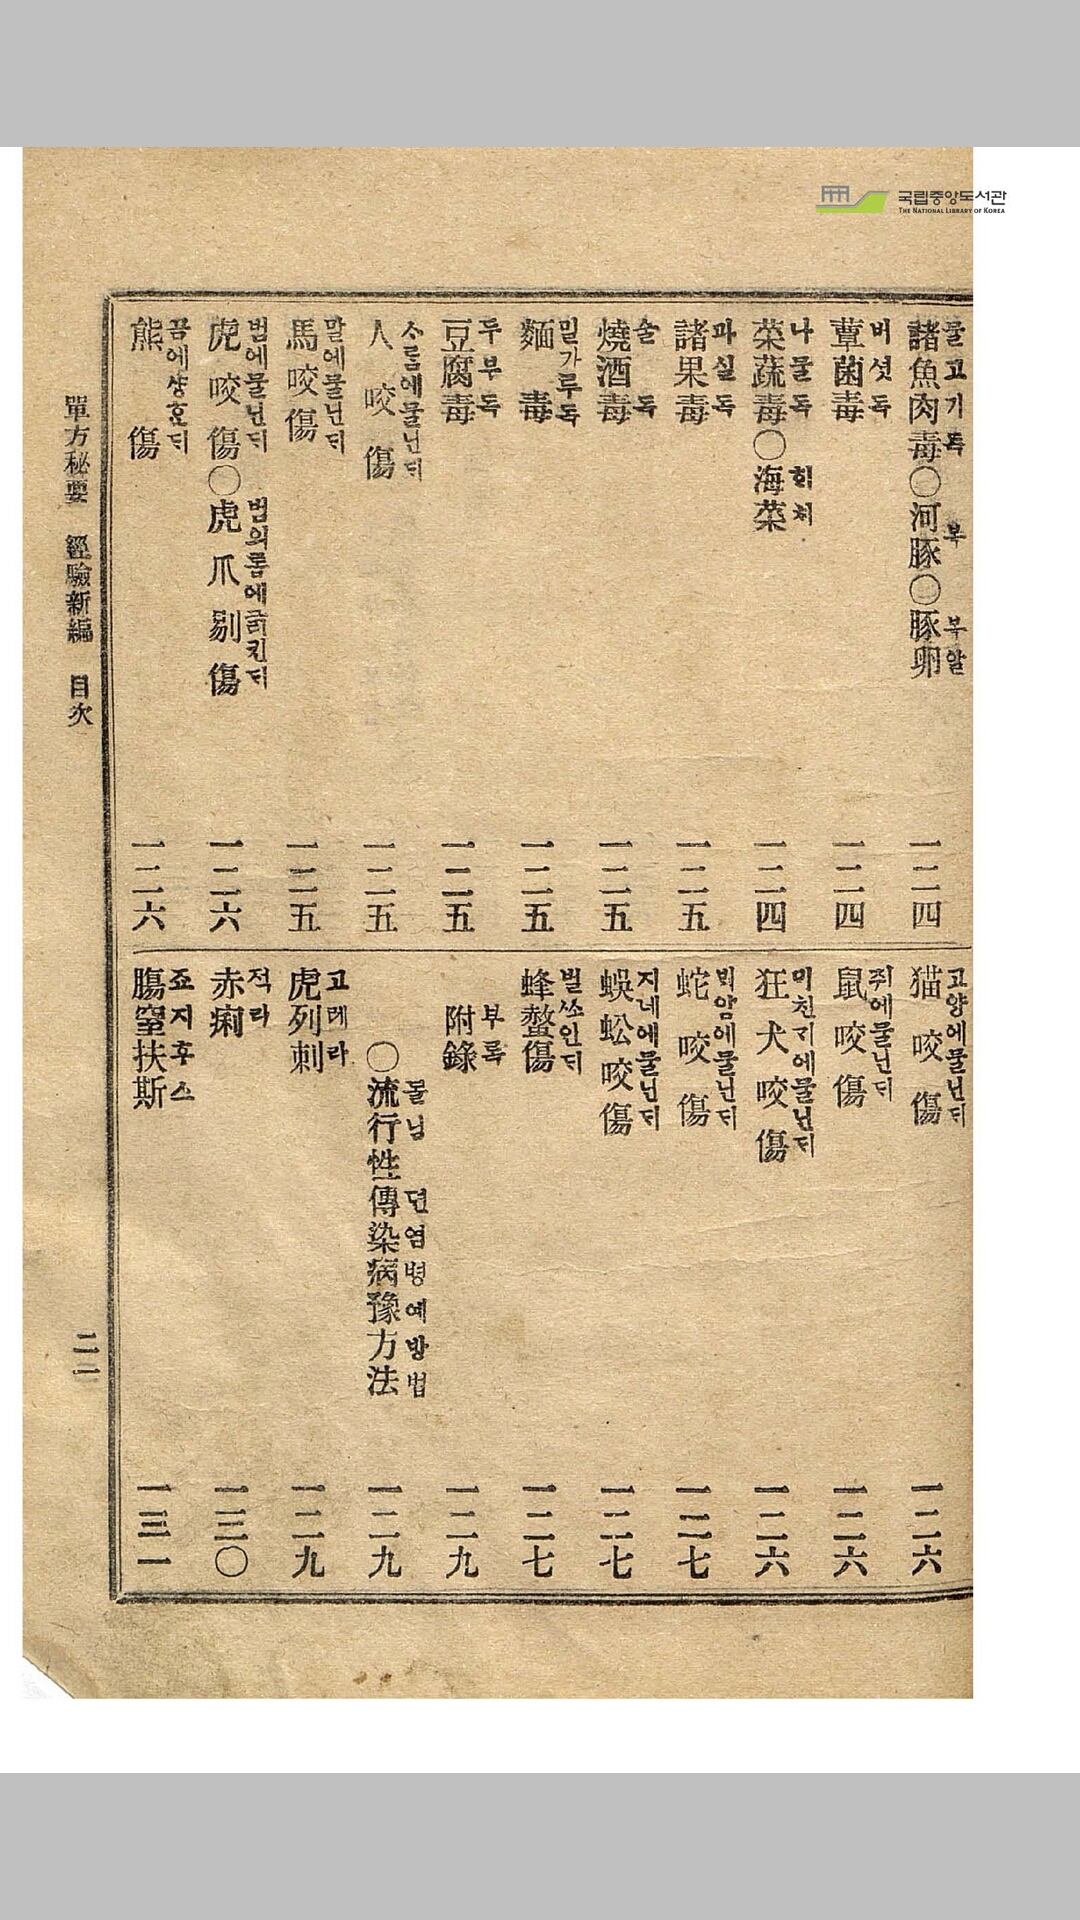 국립중앙도서관
THE NATIONAL LIBRARY OF KOREA
물고기독 복 복알
諸魚肉毒〇河豚〇豚卵 一二四
버섯독
蕈菌毒 一二四
나물독 회채
菜蔬毒〇海菜 一二四
과실독
諸果毒 一二五
술독
燒酒毒 一二五
밀가루독
麵毒 一二五
두부독
豆腐毒 一二五
사룸에물닌듸
人咬傷 一二五
말에물닌듸
馬咬傷 一二五
범에물닌듸 범의톱에긁킨듸
虎咬傷〇虎爪剔傷 一二六
곰에샹혼듸
熊傷 一二六
고양에물닌듸
猫咬傷 一二六
쥐에물닌듸
鼠咬傷 一二六
미친기에물닌듸
狂犬咬傷 一二六
비암에물닌듸
蛇咬傷 一二七
지네에물닌듸
蜈蚣咬傷 一二七
벌쏘인듸
蜂螫傷 一二七
부록
附錄 一二九
돌님 뎐염병예방법
〇流行性傳染病豫方法 一二九
고레라
虎列刺 一二九
적리
赤痢 一三〇
죠지후스
腸窒扶斯 一三一
單方秘要 經驗新編 目次 二一